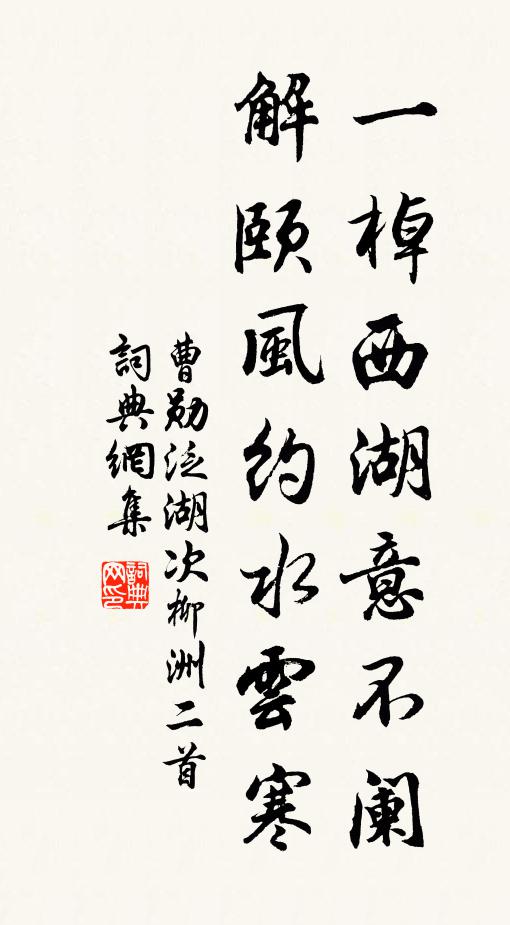 一棹西湖意不阑
解頤風約水雲寒
曹勛泛湖次柳洲二首
詞典網集
詞典网印